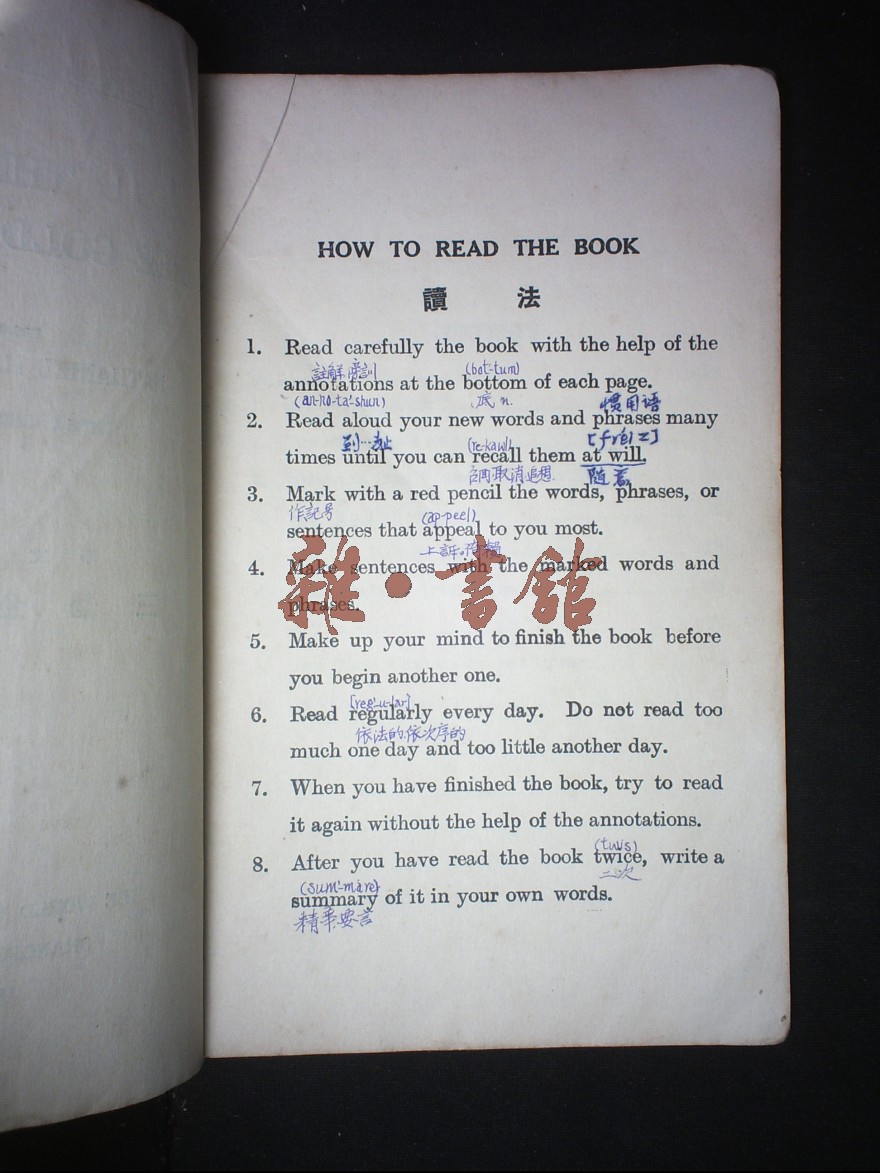 HOW TO READ THE BOOK
讀 法
1. Read carefully the book with the help of the
註解 (bot-tum)
annotations at the bottom of each page.
(an-no-ta'-shun) 底 n. 惯用语
2. Read aloud your new words and phrases many
到… (re-kawl) [freiz]
times until you can recall them at will.
取消 追想 随意
3. Mark with a red pencil the words, phrases, or
作記号 (ap-peel)
sentences that appeal to you most.
上訴
4. Make sentences with the marked words and
phrases.
雜·書館
5. Make up your mind to finish the book before
you begin another one.
[reg'-u-lar]
6. Read regularly every day. Do not read too
依法的.依次序的
much one day and too little another day.
7. When you have finished the book, try to read
it again without the help of the annotations.
(twis)
8. After you have read the book twice, write a
(sum'-mare) 二次
summary of it in your own words.
精華.要言